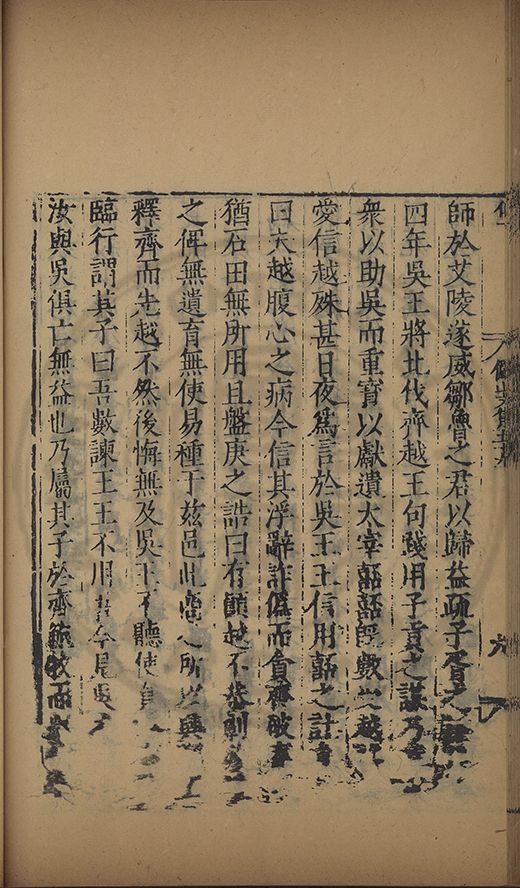 師於艾陵遂威鄒魯之君以歸益疏子胥之
四年吳王將北伐齊越王句踐用子貢之謀乃
衆以助吳而重寳以獻遺太宰嚭嚭旣數
愛信越殊甚日夜爲言於吳王王信用嚭之計
曰夫越腹心之病今信其浮辭詐僞而貪齊破
猶石田無所用且盤庚之誥曰有顚越不恭劓
之俾無遺育無使易種于兹邑此商之所以興
釋齊而先越不然後悔無及吳王不聽使
臨行謂其子曰吾數諫王王不用吾今見吳
汝與吳俱亡無益也乃屬其子於齊鮑牧而